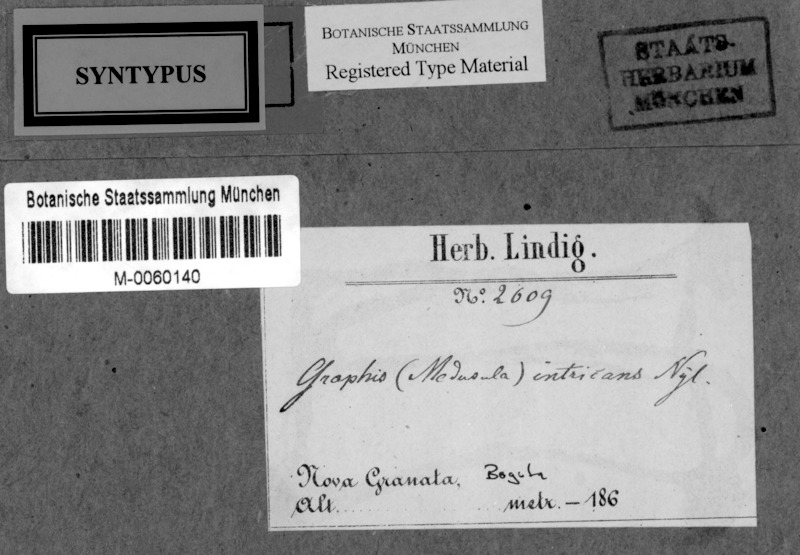 SYNTYPUS
BOTANISCHE STAATSSAMMLUNG
MÜNCHEN
Registered Type Material
STAATS-
HERBARIUM
MÜNCHEN
Botanische Staatssammlung München
M-0060140
Herb. Lindig.
No. 2609
Graphis (Medusula) intricans Nyl.
Nova Granata, Bogota
Alt. metr. – 186